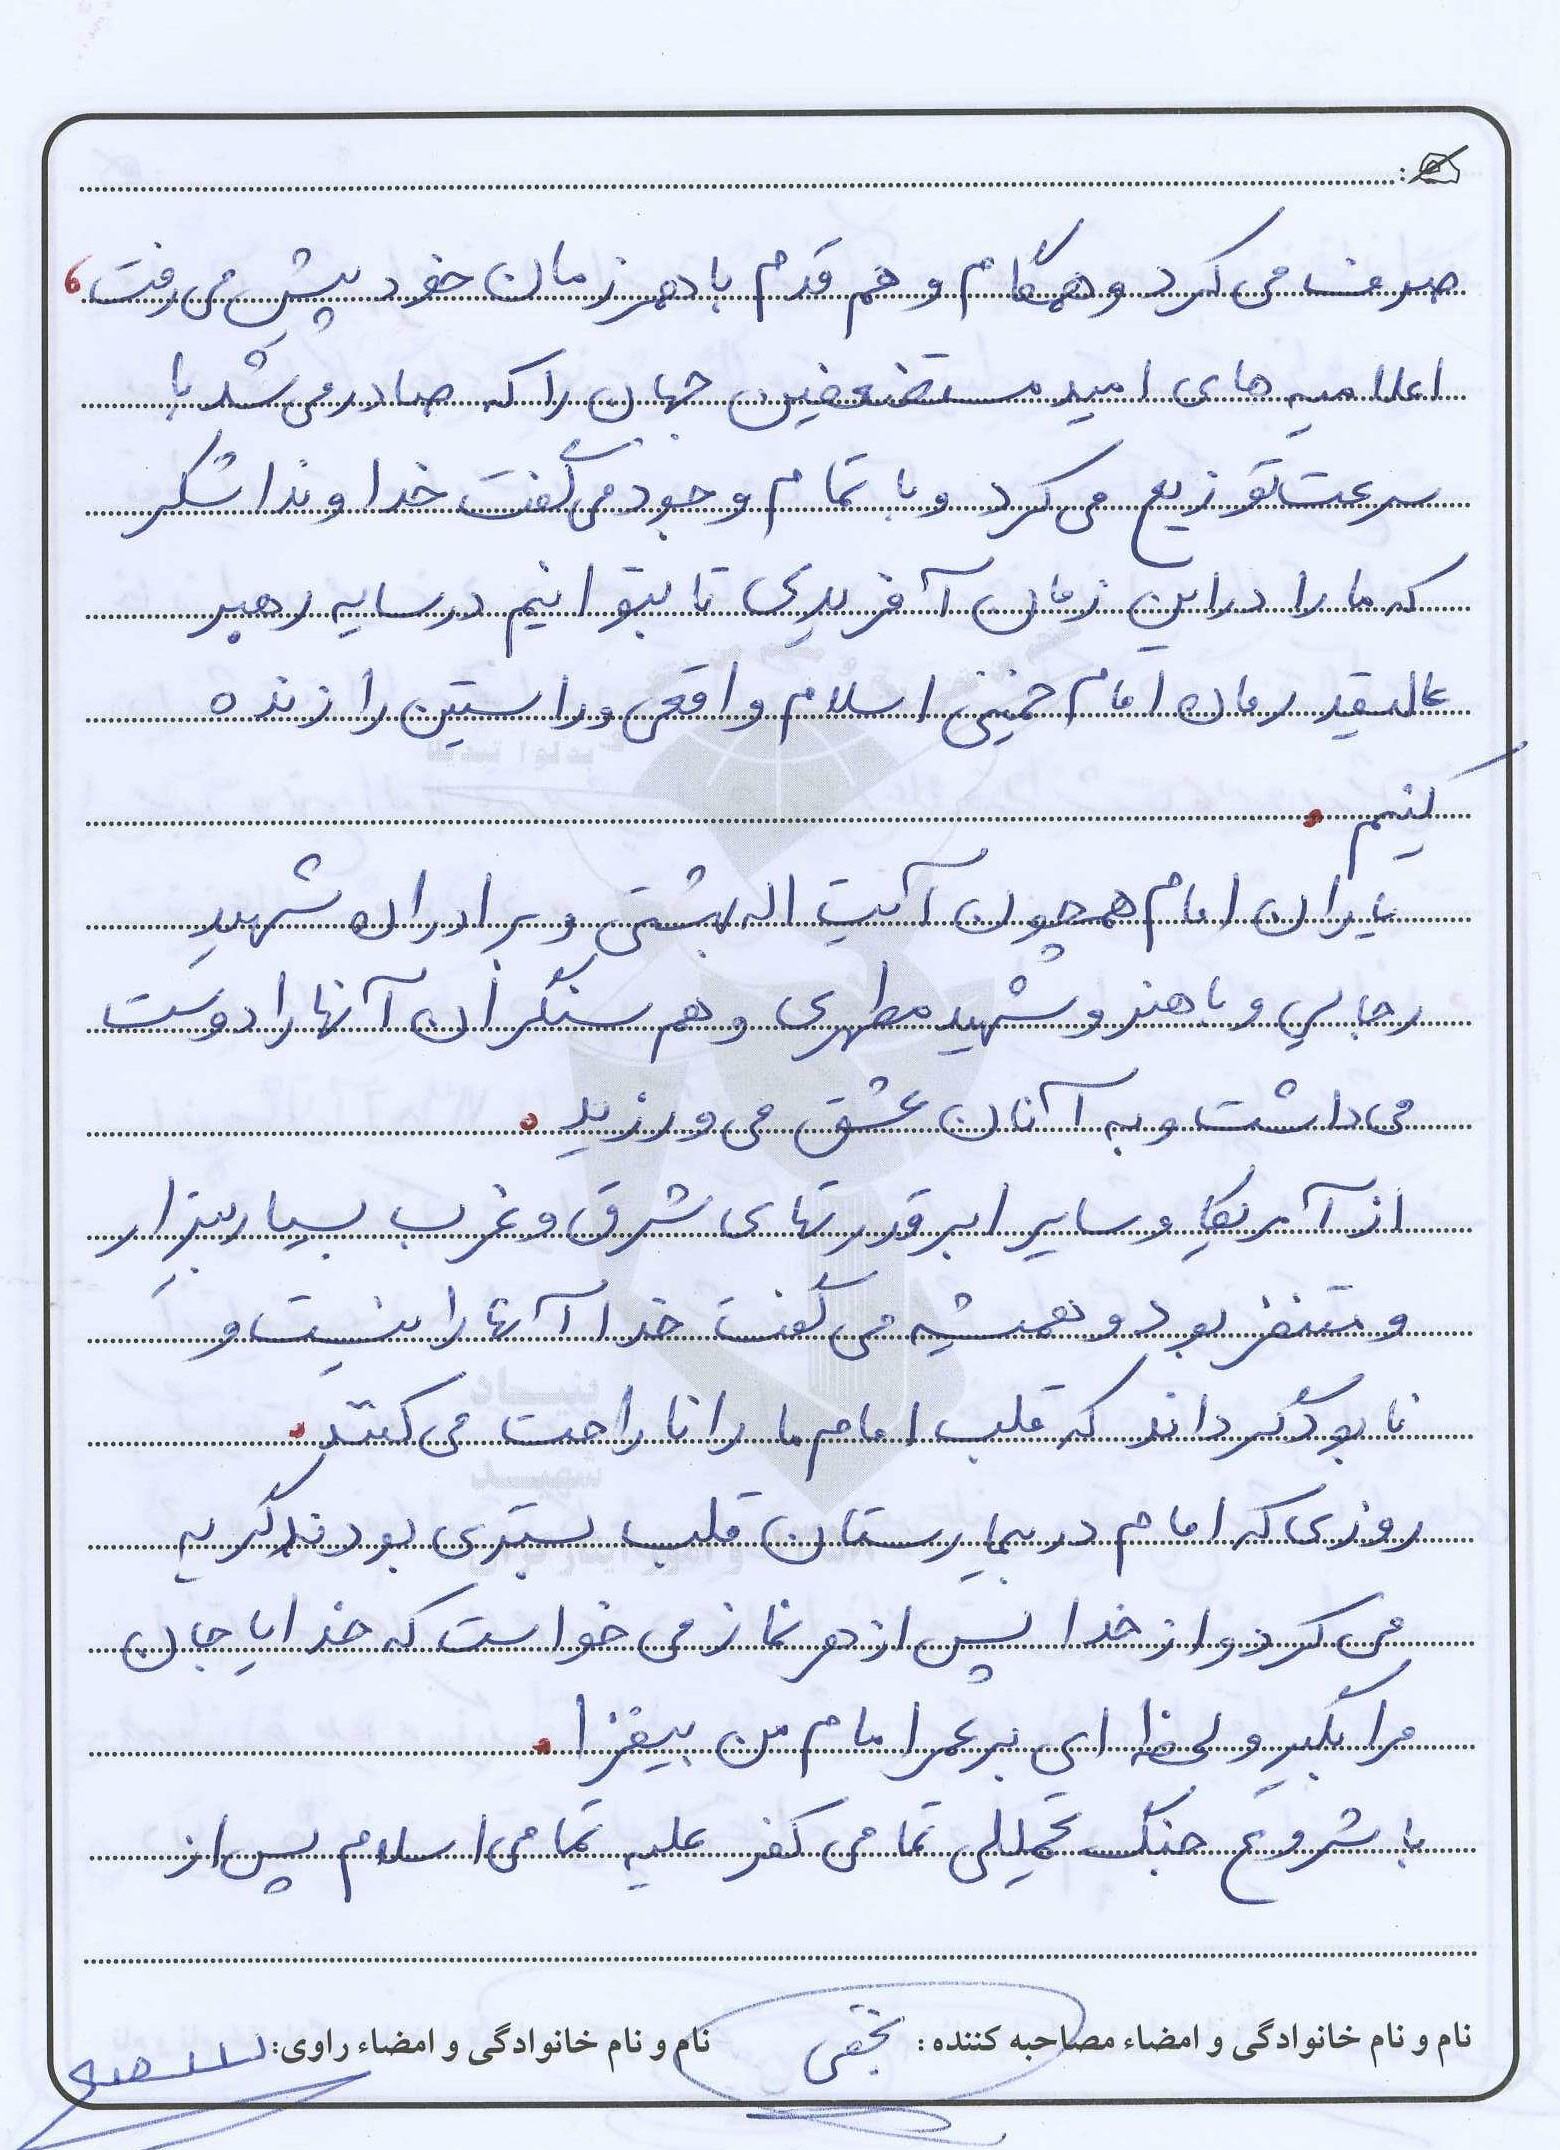 صرف می کرد و همگام و هم قدم با همرزمان خود پیش می رفت،
اعلامیه های امید مستضعفین جهان را که صادر می شد با
سرعت توزیع می کرد و با تمام وجود می گفت خداوندا شکر
که ما را در این زمان آفریدی تا بتوانیم در سایه رهبر
عالیقدرمان امام خمینی اسلام واقعی و راستین را زنده
کنیم.
یاران امام همچون آیت اله بهشتی و برادران شهید
رجایی و باهنر و شهید مطهری و هم سنگران آنها را دوست
می داشت و به آنان عشق می ورزید.
از آمریکا و سایر ابر قدرتهای شرق و غرب بسیار بیزار
و متنفر بود و همیشه می گفت خدا آنها را نیست و
نابود گرداند که قلب امام ما را ناراحت می کنند.
روزی که امام در بیمارستان قلب بستری بودند گریه
می کرد و از خدا پس از هر نماز می خواست که خدایا جان
مرا بگیر و لحظه ای بر عمر امام من بیفزا.
با شروع جنگ تحمیلی تمامی کفر علیه تمامی اسلام پس از
نام و نام خانوادگی و امضاء مصاحبه کننده: نام و نام خانوادگی و امضاء راوی: